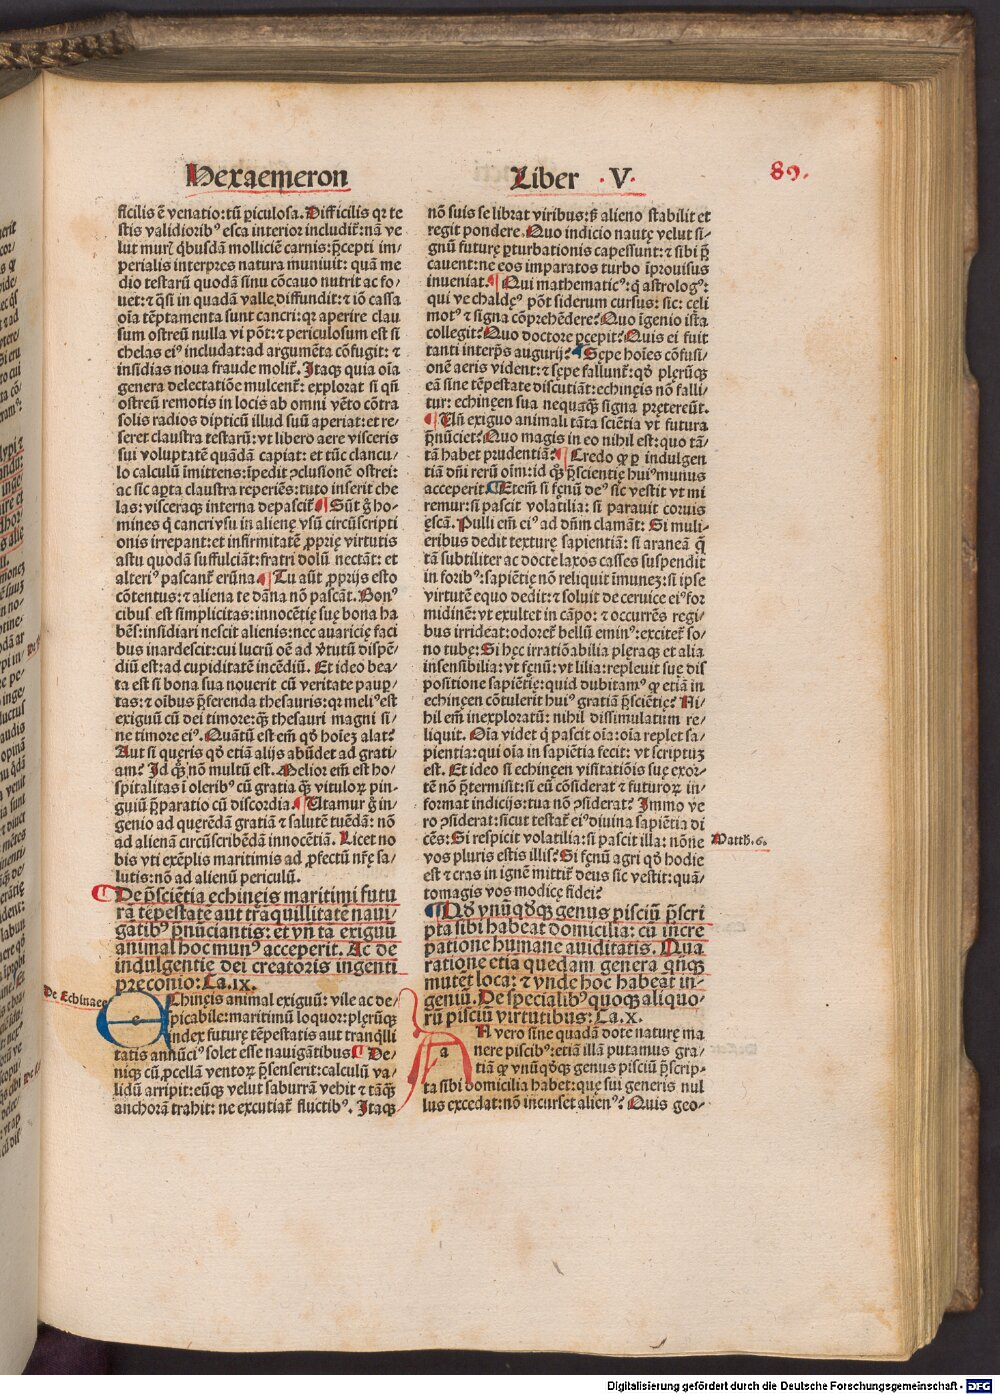 Hexaemeron
Liber .V.
89.
ficilis ē venatio: tñ ꝑiculosa. Difficilis qꝛ te
stis validioribꝰ esca interior includit᷑: nā ve
lut murꝰ q̇busdā molliciē carnis: p̄cepti im/
perialis interpres natura muniuit: quā me
dio testarū quodā sinu cōcauo nutrit ac fo/
uet: ⁊ q̄si in quadā valle diffundit: ⁊ iō cassa
oīa tēptamenta sunt cancri: qꝛ aperire clau
sum ostreū nulla vi pōt: ⁊ periculosum est si
chelas eiꝰ includat: ad argumēta cōfugit: ⁊
insidias noua fraude molit᷑. Itaqꝫ quia oīa
genera delectatiōe mulcent᷑: explorat si qñ
ostreū remotis in locis ab omni vēto cōtra
solis radios dipticū illud suū aperiat: et re/
seret claustra testarū: vt libero aere visceris
sui voluptatē quādā capiat: et tūc clancu/
lo calculū īmittens: īpedit ↄclusionē ostrei:
ac sic aꝑta claustra reperiēs: tuto inserit che
las: visceraqꝫ interna depascit᷑. Sūt g̊ ho/
mines q̇ cancri vsu in alienę vsū circūscripti
onis irrepant: et infirmitatē ꝓprię virtutis
astu quodā suffulciāt: fratri dolū nectāt: et
alteriꝰ pascant᷑ erūna. Tu aūt ꝓprijs esto
cōtentus: ⁊ aliena te dāna nō pascāt. Bonꝰ
cibus est simplicitas: innocētię suę bona ha
bēs: insidiari nescit alienis: nec auaricię faci
bus inardescit: cui lucrū oē ad v̓tutū dispē/
diū est: ad cupiditatē incēdiū. Et ideo bea/
ta est si bona sua nouerit cū veritate pauꝑ/
tas: ⁊ oībus p̄ferenda thesauris: qꝛ meliꝰ est
exiguū cū dei timore: qꝫ thesauri magni si/
ne timore eiꝰ. Quātū est em̄ qḋ hoīeꝫ alat?
Aut si queris qḋ etiā alijs abūdet ad grati/
am? Id qꝫ nō multū est. Melior em̄ est ho/
spitalitas ī oleribꝰ cū gratia qꝫ vituloꝝ pin/
guiū p̄paratio cū discordia. Utamur g̊ in
genio ad querēdā gratiā ⁊ salutē tuēdā: nō
ad alienā circūscribēdā innocētiā. Licet no
bis vti exēplis maritimis ad ꝓfectū nr̄ę sa/
lutis: nō ad alienū periculū.
De p̄sciētia echineis maritimi futu
ra tēpestate aut trāquillitate naui/
gātibꝰ p̄nūciantis: et vn̄ ta exiguū
animal hoc munꝰ acceperit. Ac de
indulgentię dei creatoris ingenti
pręconio: Ca. IX.
De Echinaee
e
Echineis animal exiguū: vile ac de/
spicabile: maritimū loquor: plerūqꝫ
index futurę tēpestatis aut tranq̇lli
tatis annūciꝰ solet esse nauigātibus. De/
nicꝫ cū ꝓcellā ventoꝝ p̄senserit: calculū va/
lidū arripit: eūqꝫ velut saburrā vehit ⁊ tāqꝫ
anchorā trahit: ne excutiat᷑ fluctibꝰ. Itaqꝫ
nō suis se librat viribus: sꝫ alieno stabilit et
regit pondere. Quo indicio nautę velut si/
gnū futurę ꝑturbationis capessunt: ⁊ sibi p̄
cauent: ne eos imparatos turbo īprouisus
inueniat. Qui mathematicꝰ: q̇ astrologꝰ:
qui ve chaldęꝰ pōt siderum cursus: sic: celi
motꝰ ⁊ signa cōprehēdere? Quo īgenio ista
collegit? Quo doctore ꝑcepit? Quis ei fuit
tanti interp̄s augurij? Sępe hoīes cōfusi/
onē aeris vident: ⁊ sępe fallunt᷑: qḋ plerūqꝫ
eā sine tēpestate discutiāt: echineis nō falli/
tur: echineen sua nequaqꝫ signa pretereūt.
Un̄ exiguo animali tāta sciētia vt futura
p̄nūciet? Quo magis in eo nihil est: quo tā/
tā habet prudentiā? Credo ꝙ ꝑ indulgen
tiā dn̄i rerū oīm: id qꝫ p̄scientię huiꝰ munus
acceperit. Etem̄ si fęnū deꝰ sic vestit vt mi
remur: si pascit volatilia: si parauit coruis
ęscā. Pulli em̄ eiꝰ ad dn̄m clamāt: Si muli/
eribus dedit texturę sapientiā: si araneā q̄
tā subtiliter ac docte laxos casses suspendit
in foribꝰ: sapiētię nō reliquit īmuneꝫ: si ipse
virtutē equo dedit: ⁊ soluit de ceruice eiꝰ for
midinē: vt exultet in cāpo: ⁊ occurrēs regi/
bus irrideat: odoret᷑ bellū eminꝰ: excitet᷑ so/
no tubę: Si hęc irratiōabilia pleraqꝫ et alia
insensibilia: vt fęnū: vt lilia: repleuit suę dis
positione sapiētię: quid dubitamꝰ ꝙ etiā in
echineen cōtulerit huiꝰ gratiā p̄sciētię? Ni/
hil em̄ inexploratū: nihil dissimulatum re/
liquit. Oīa videt q̇ pascit oīa: oīa replet sa/
pientia: qui oīa in sapiētia fecit: vt scriptuꝫ
est. Et ideo si echineen visitatiōis suę exor/
tē nō p̄termisit: si eū cōsiderat ⁊ futuroꝝ in/
format indicijs: tua nō ↄsiderat? Immo ve
ro ↄsiderat: sicut testat᷑ eiꝰ diuina sapiētia di
cēs: Si respicit volatilia: si pascit illa: nōne
vos pluris estis illis? Si fęnū agri qḋ hodie
est ⁊ cras in ignē mittit᷑ deus sic vestit: quā/
tomagis vos modicę fidei?
Matth. 6.
Qḋ vnūqḋqꝫ genus pisciū p̄scri
pta sibi habeat domicilia: cū incre
patione humane auiditatis. Qua
ratione etia quedam genera q̄nqꝫ
mutet loca: ⁊ vnde hoc habeat in/
geniū. De specialibꝰ quoqꝫ aliquo/
rū pisciū virtutibus: Ca. X.
a
At vero sine quadā dote naturę ma
nere piscibꝰ: etiā illā putamus gra/
tiā ꝙ vnūqḋqꝫ genus pisciū p̄scrip/
ta sibi domicilia habet: quę sui generis nul
lus excedat: nō incurset alienꝰ? Quis geo/
Digitalisierung gefördert durch die Deutsche Forschungsgemeinschaft - DFG